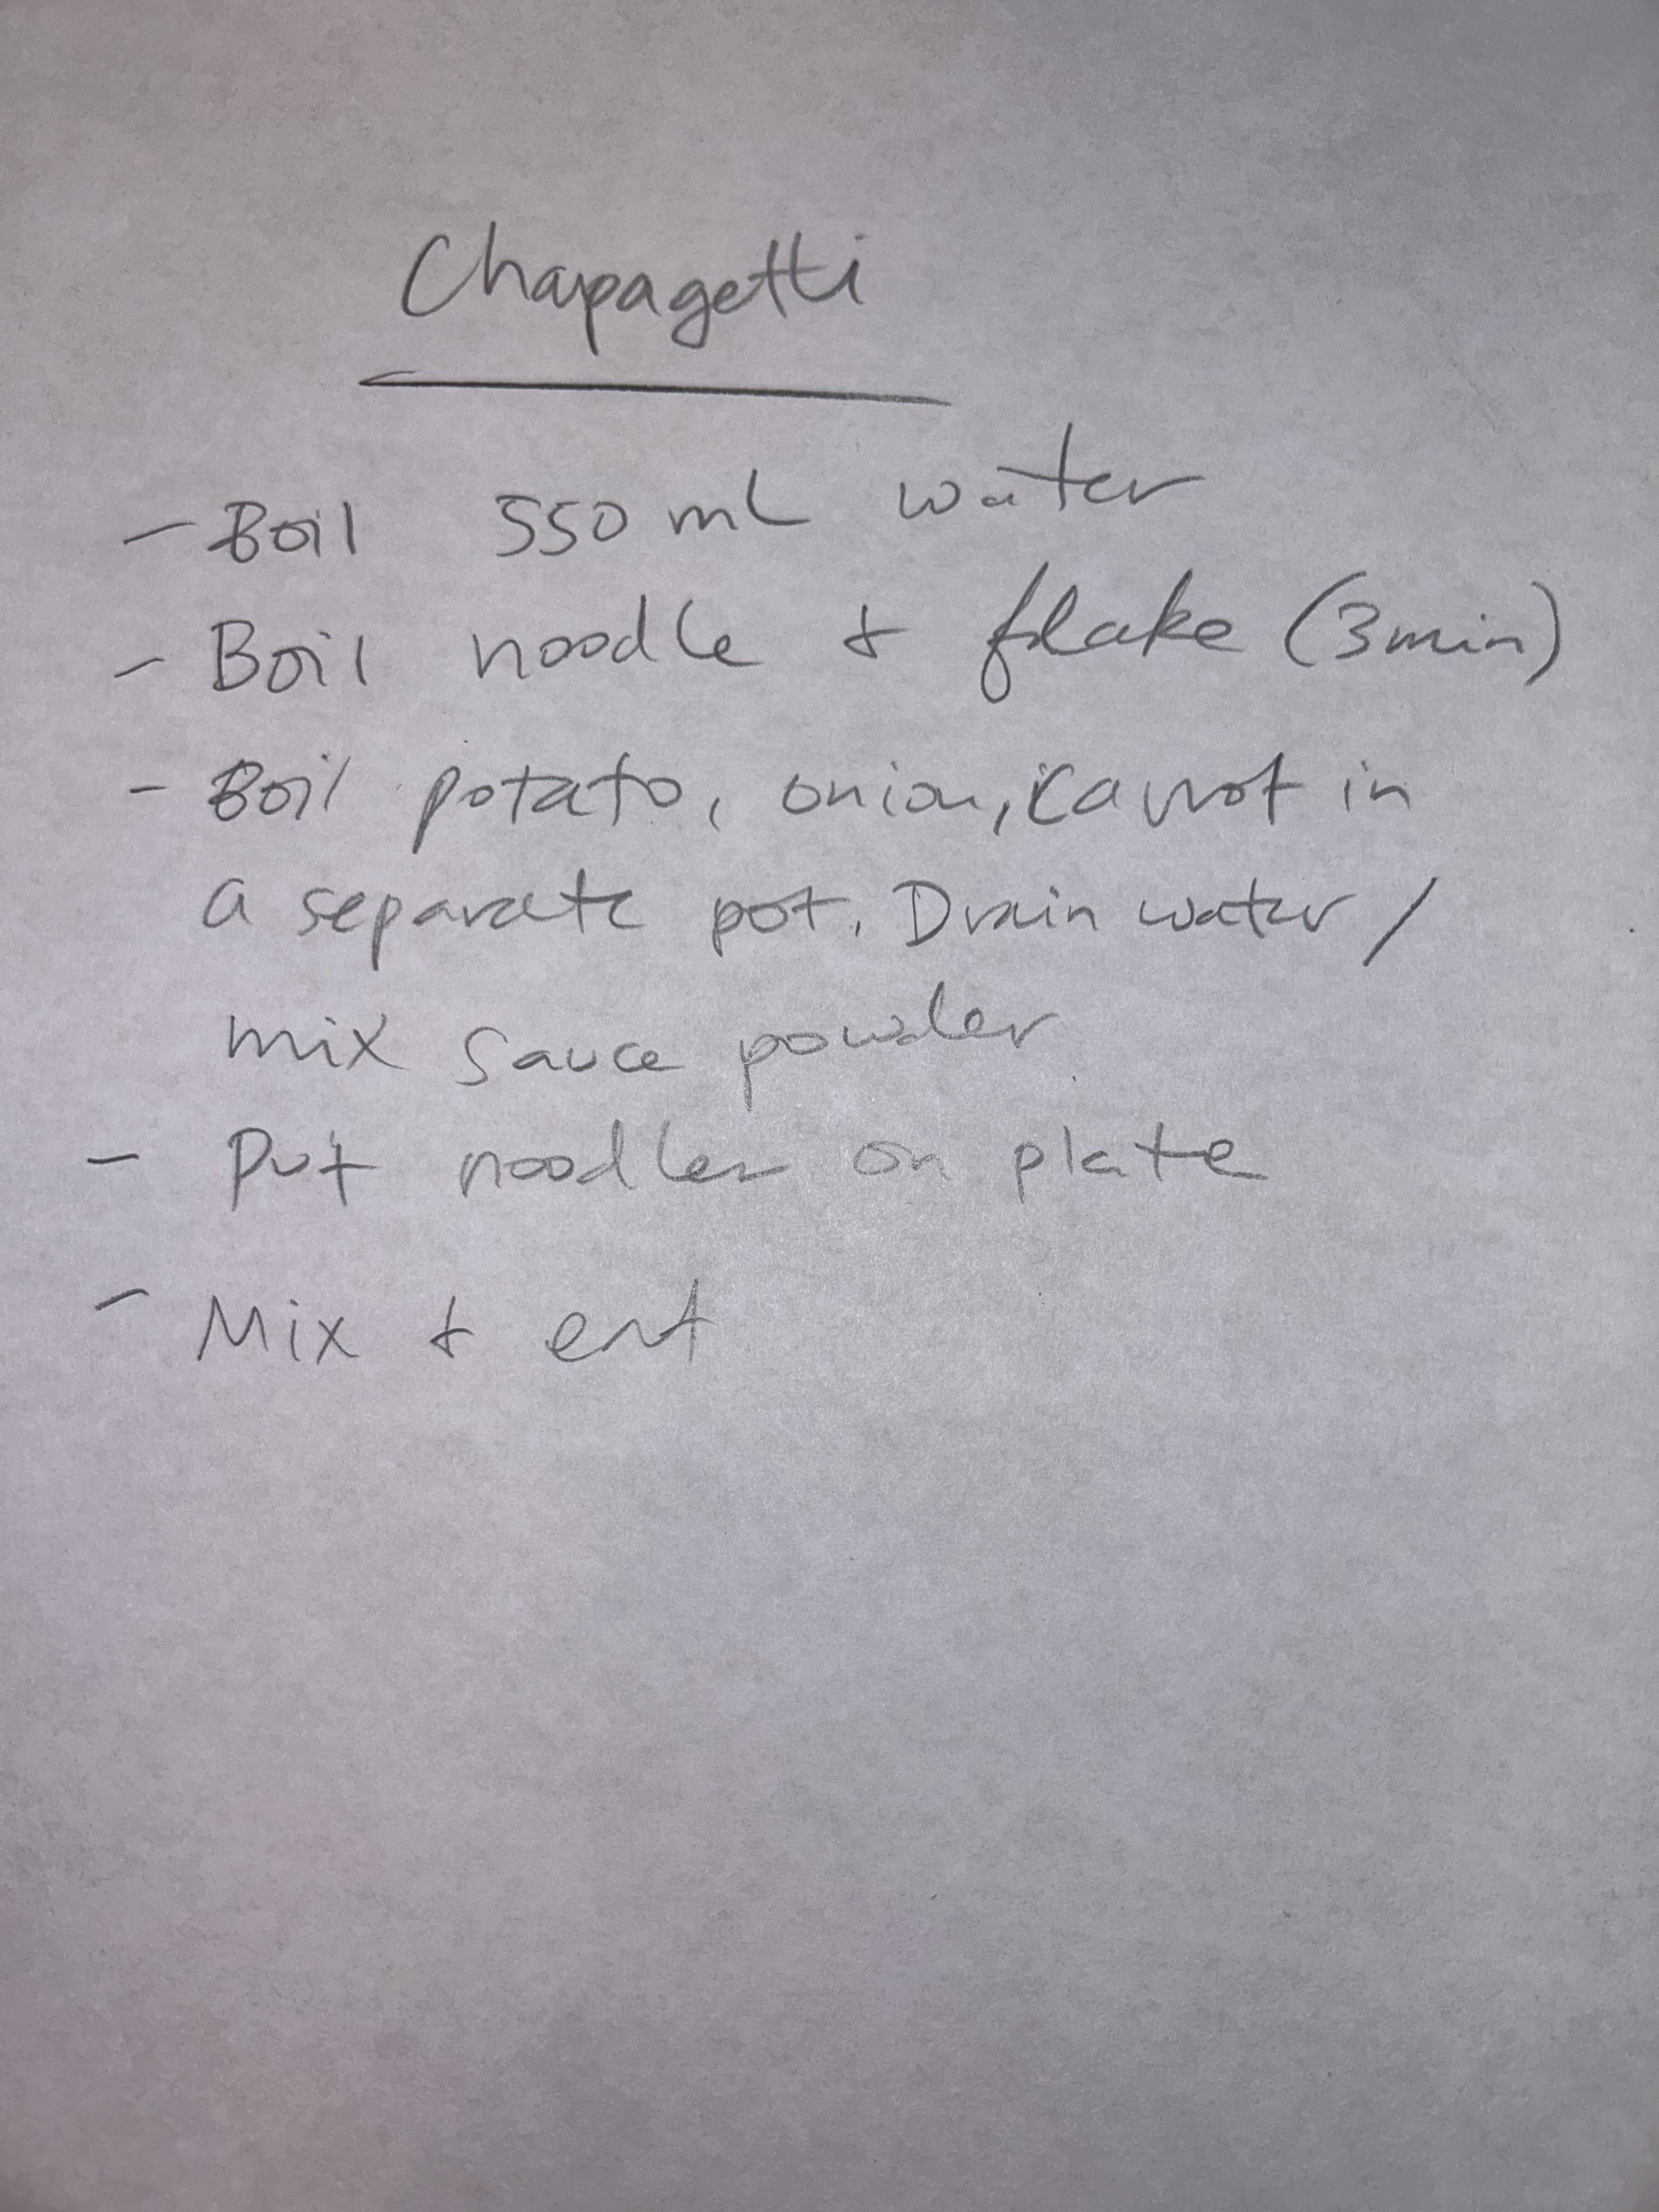 Chapagetti
- Boil 550 mL water
- Boil noodle & flake (3min)
- Boil potato, onion, carrot in
a separate pot. Drain water /
mix sauce powder
- Put noodles on plate
- Mix & eat